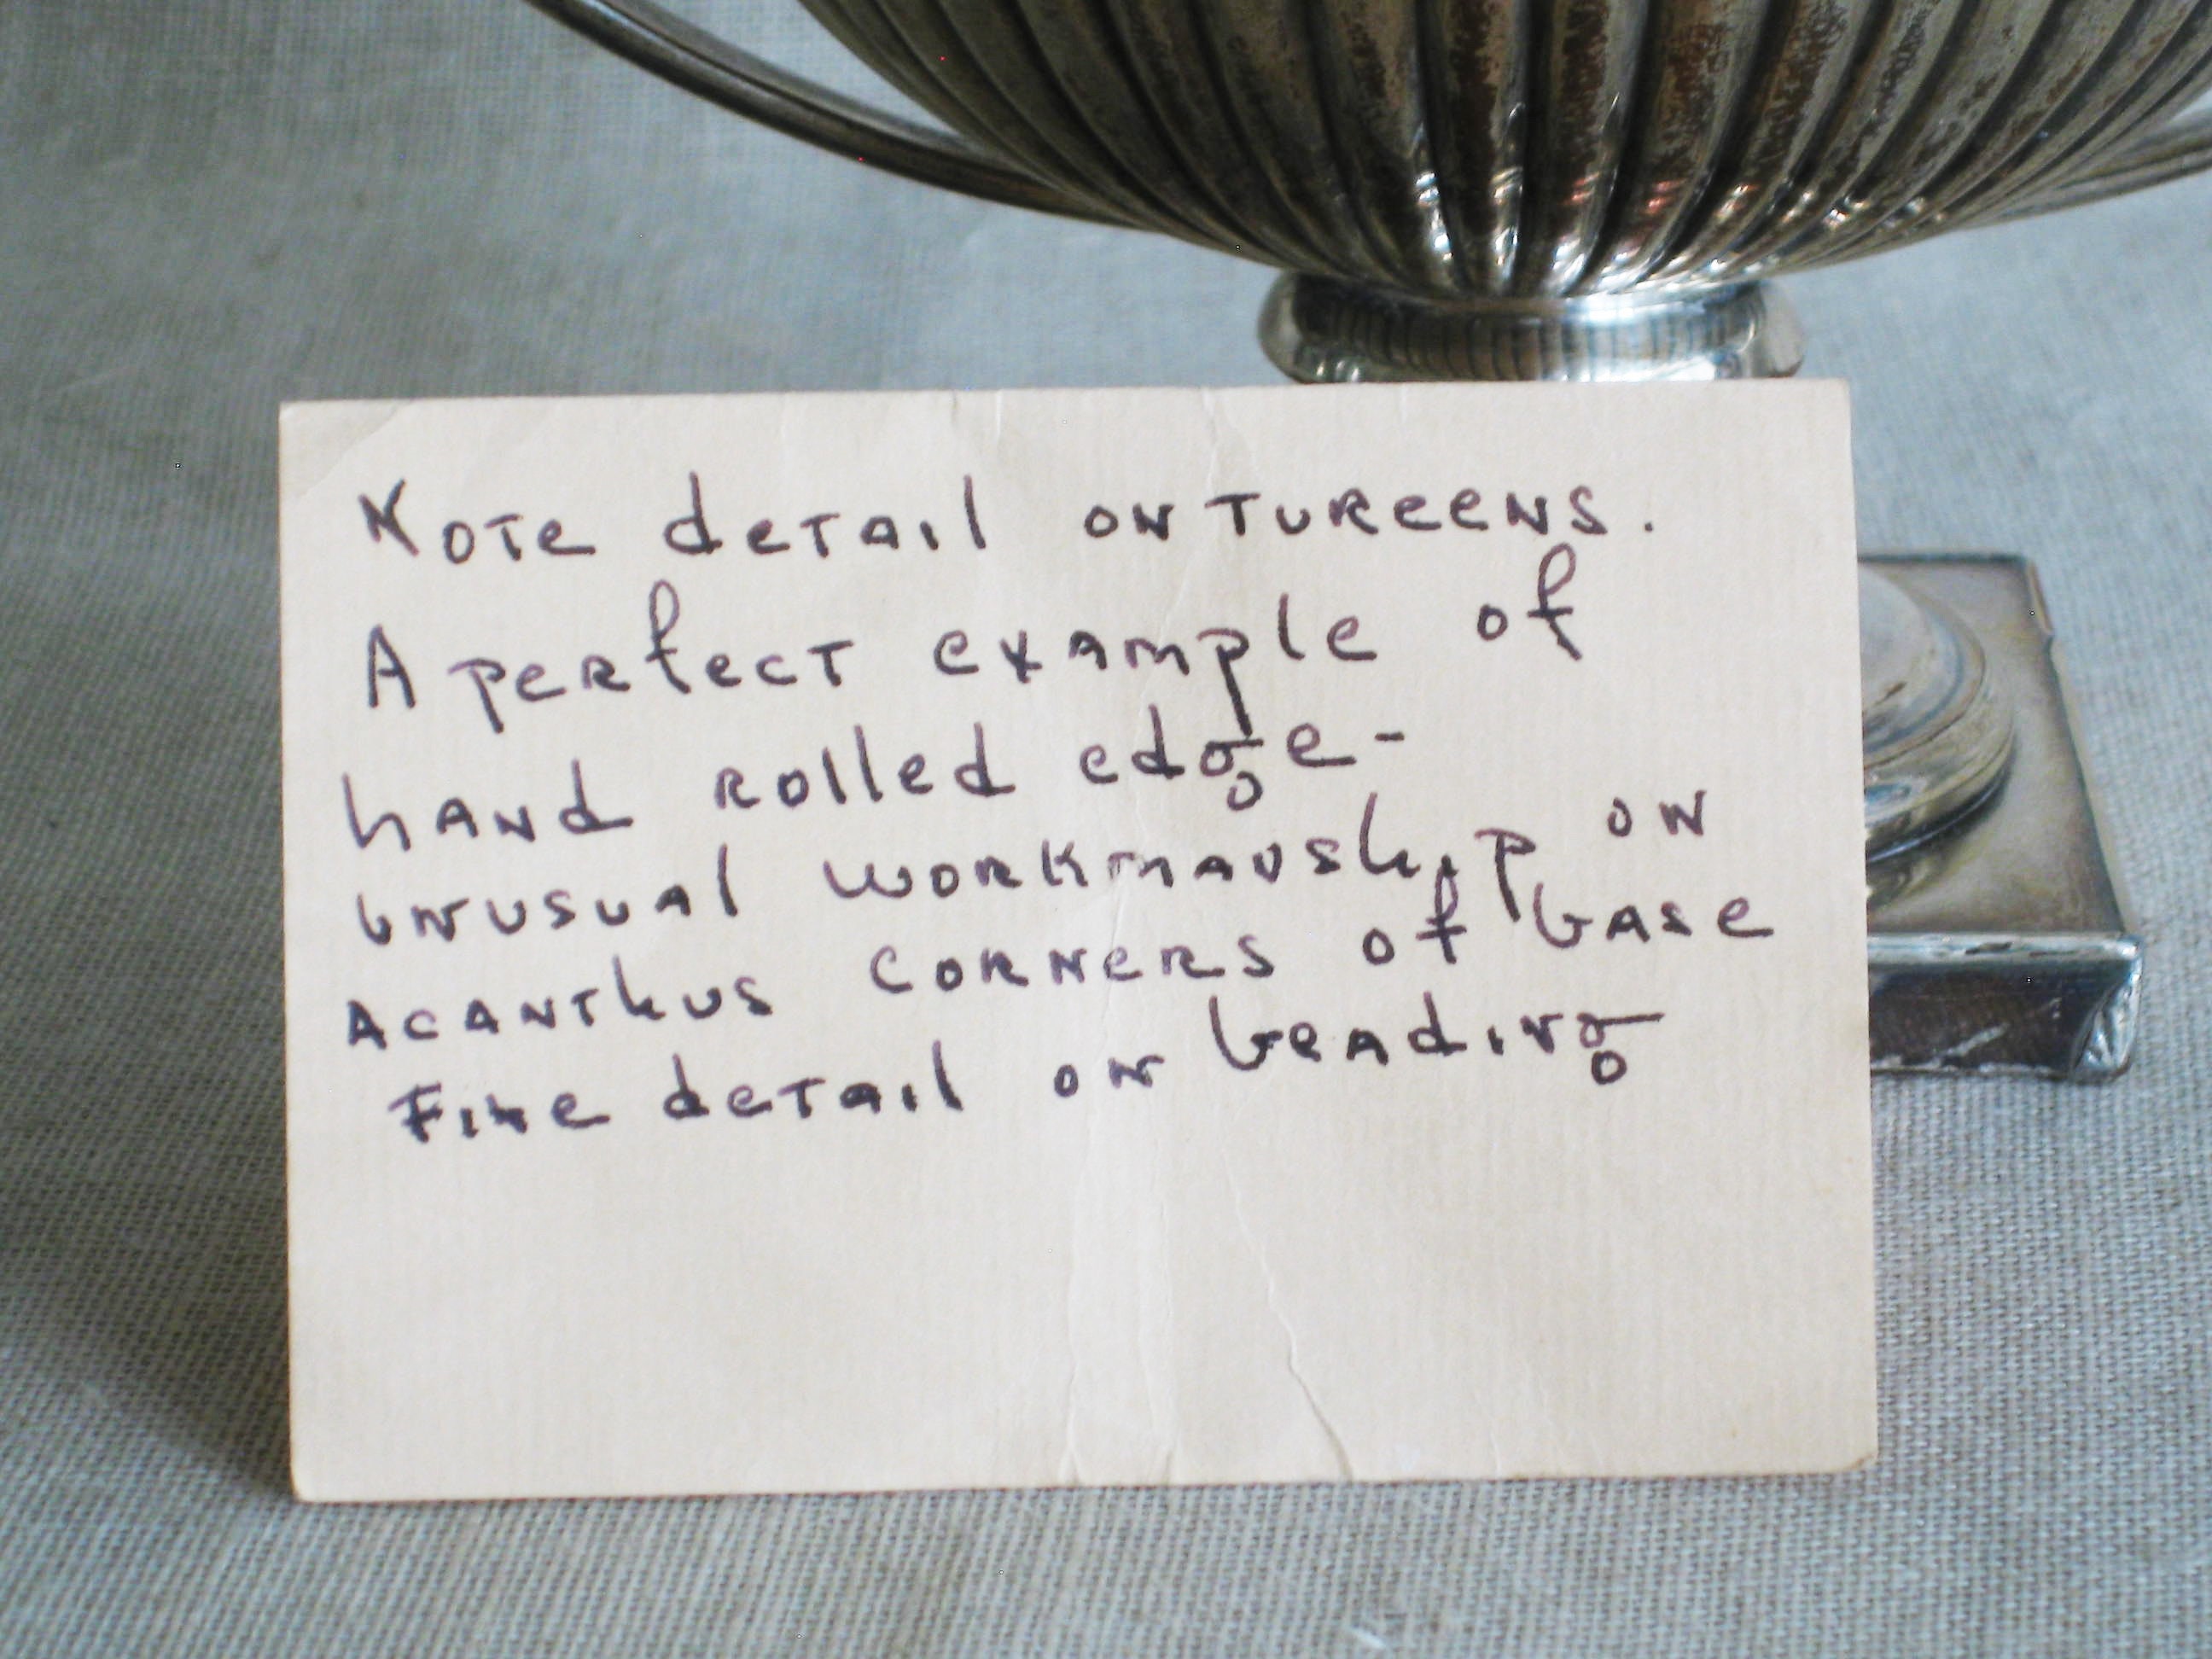 Note detail on tureens.
A perfect example of
hand rolled edge-
unusual workmanship on
acanthus corners of base
Fine detail on beading